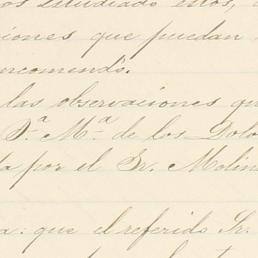 os estudiado estos,
ciones que puedan
encomendó.
las observaciones qu
D.ª M.ª de los Dolo
ta por el Sr. Molin
a: que el referido Sr.